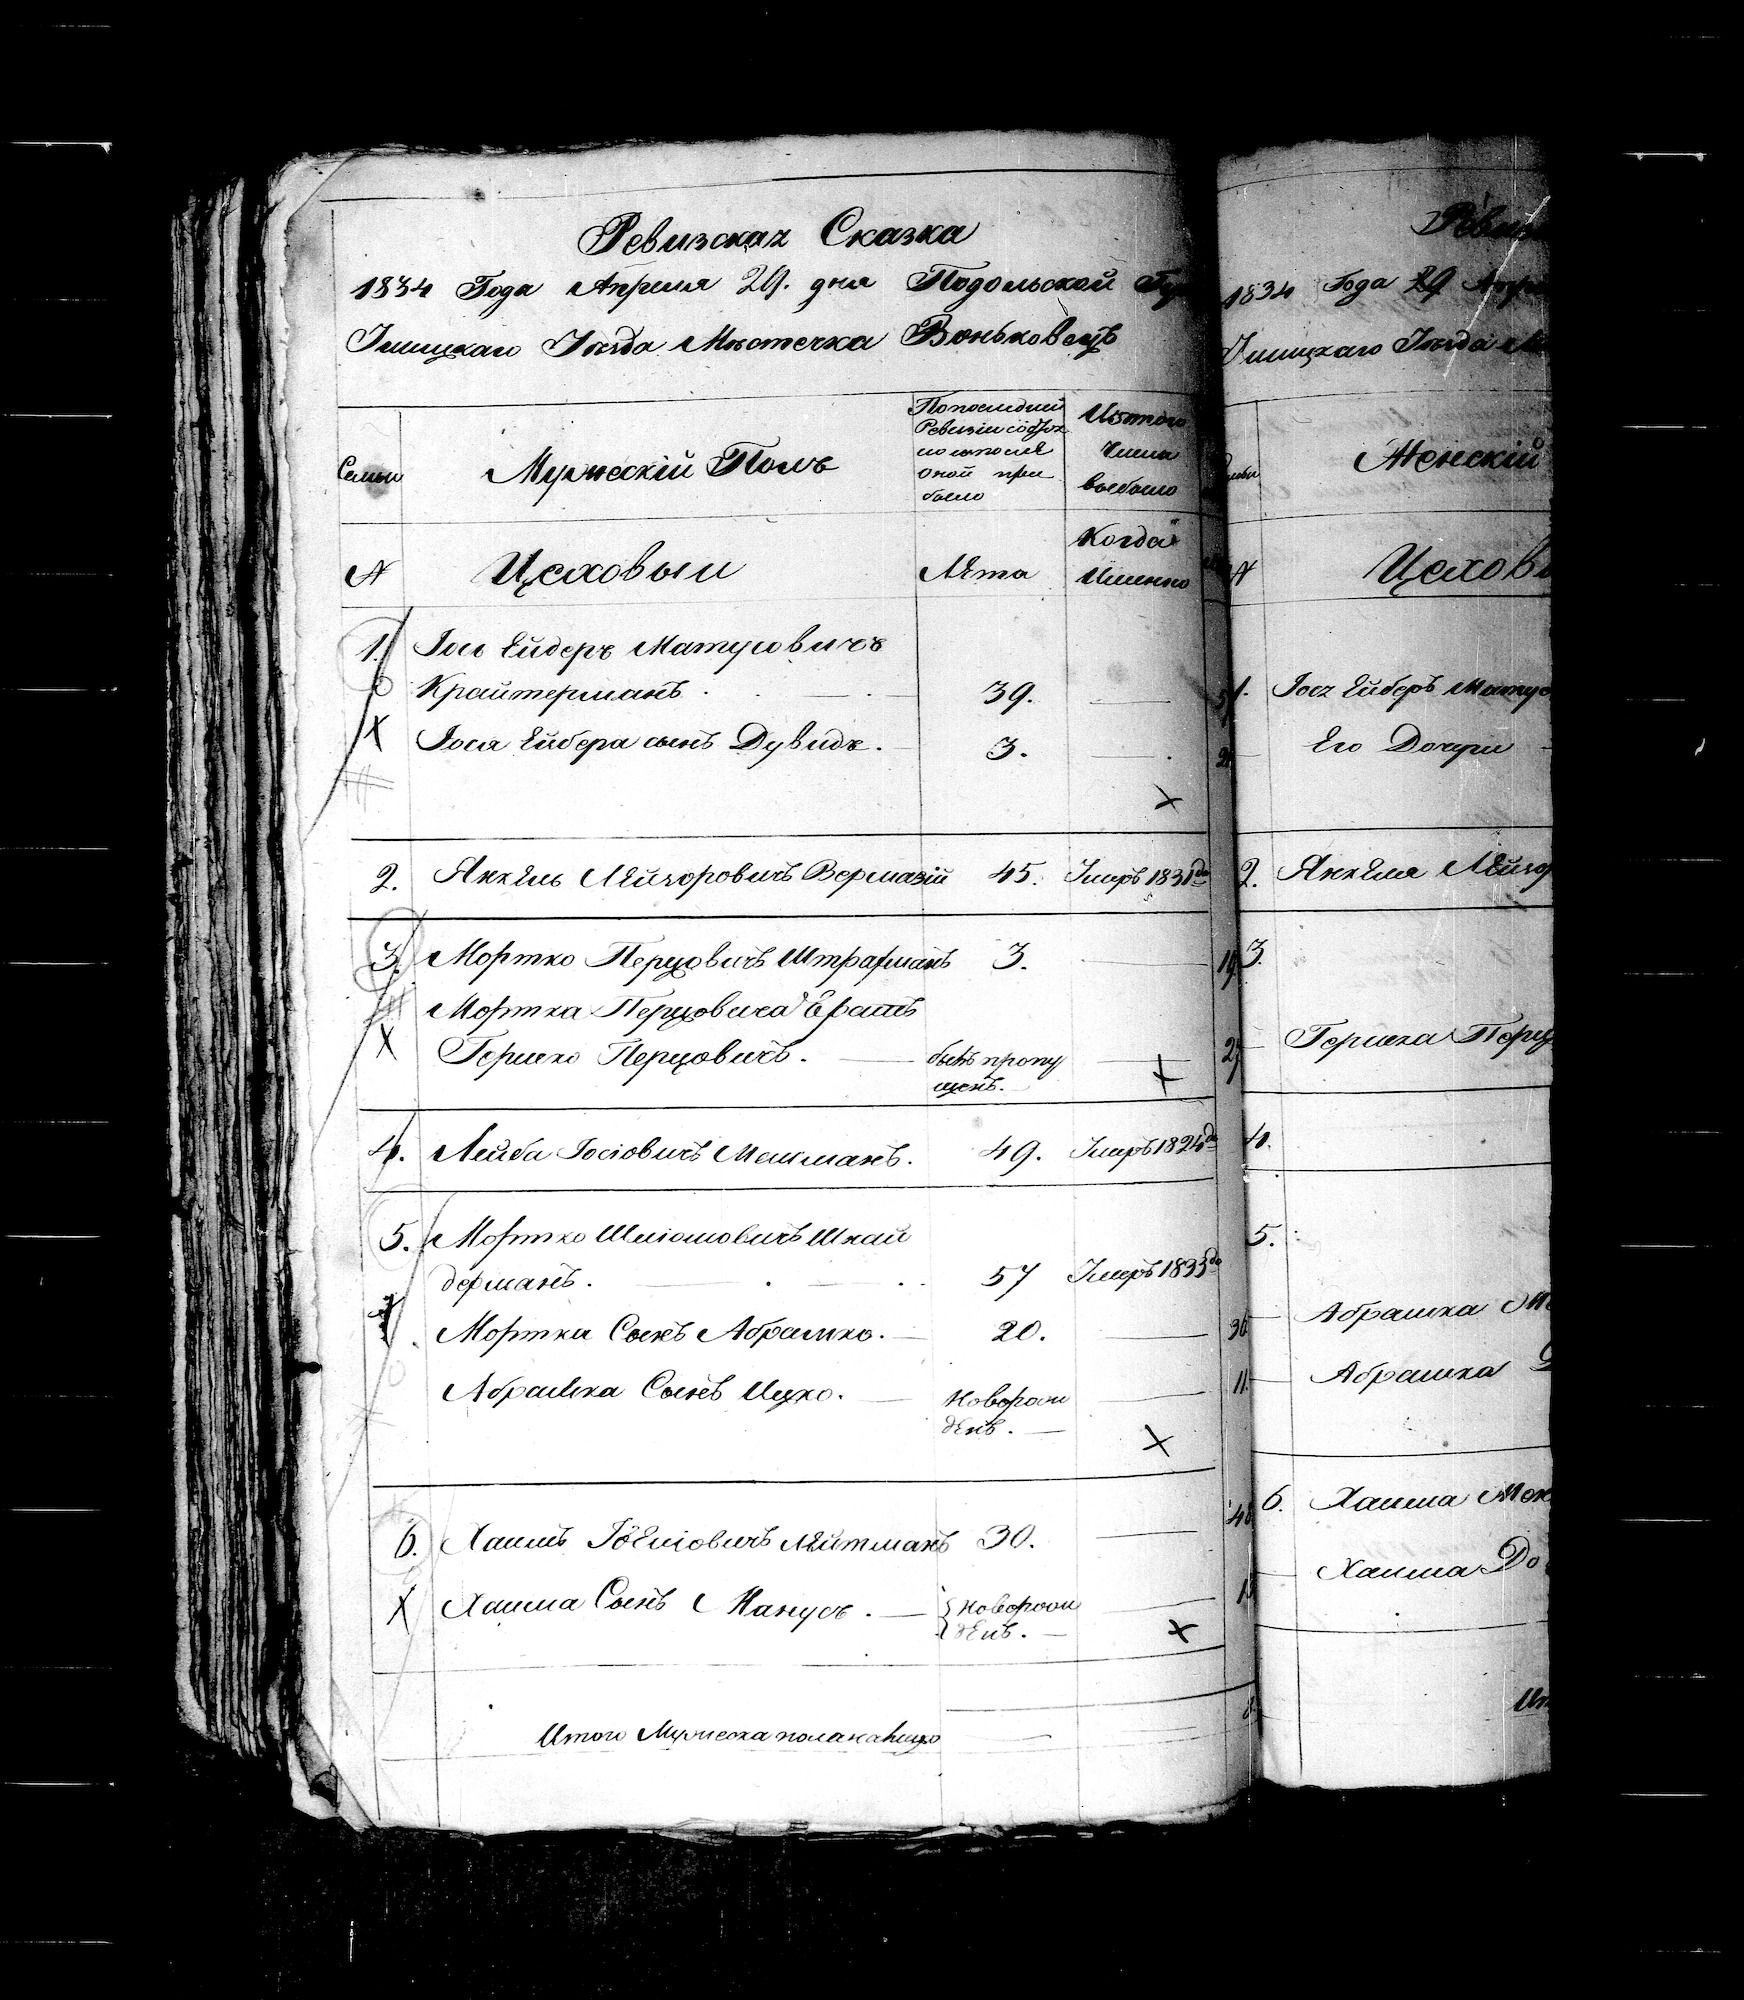 Ревизская Сказка
1834 Года Апреля 29. дня Подольской
Ушицкаго Уѣзда Мѣстечка Воньковецъ
Семьи
Мужескій Полъ
По последней
Ревизіи состоя
ло и после
оной при
было
Изтого
Числа
выбыло
№
Цеховыи
Лѣта
Когда
Именно
1.
Іось Лейберъ Матусовичъ
Крайтерманъ. 39.
Іося Лейбера сынъ Дувидъ. 3.
2. Янкель Лейзоровичъ 45. Умеръ 1831го
3. Мортко Перцовичъ Штрафманъ 3.
Мортка Перцовича Братъ
Гершко Перцовичъ. былъ пропу
щенъ.
4. Лейба Іосіовичъ Мельманъ. 49. Умеръ 1824го
5. Мортко Шліомовичъ Шнай
дерманъ. 57 Умеръ 1833го
Мортки Сынъ Абрамко. 20.
Абрашка Сынъ Ицко. новорож
денъ.
6. Хаимъ Лейтманъ 30.
Хаима Сынъ Манусъ. новорож
денъ.
Итого Мужеска пола налицо
1834 Года 29
Ушицкаго Уѣзда
Женскій
№
1.
Его Дочери
2. Янкеля
3.
Гершка
4.
5.
Абрашка
Абрашка
6. Хаима
Хаима